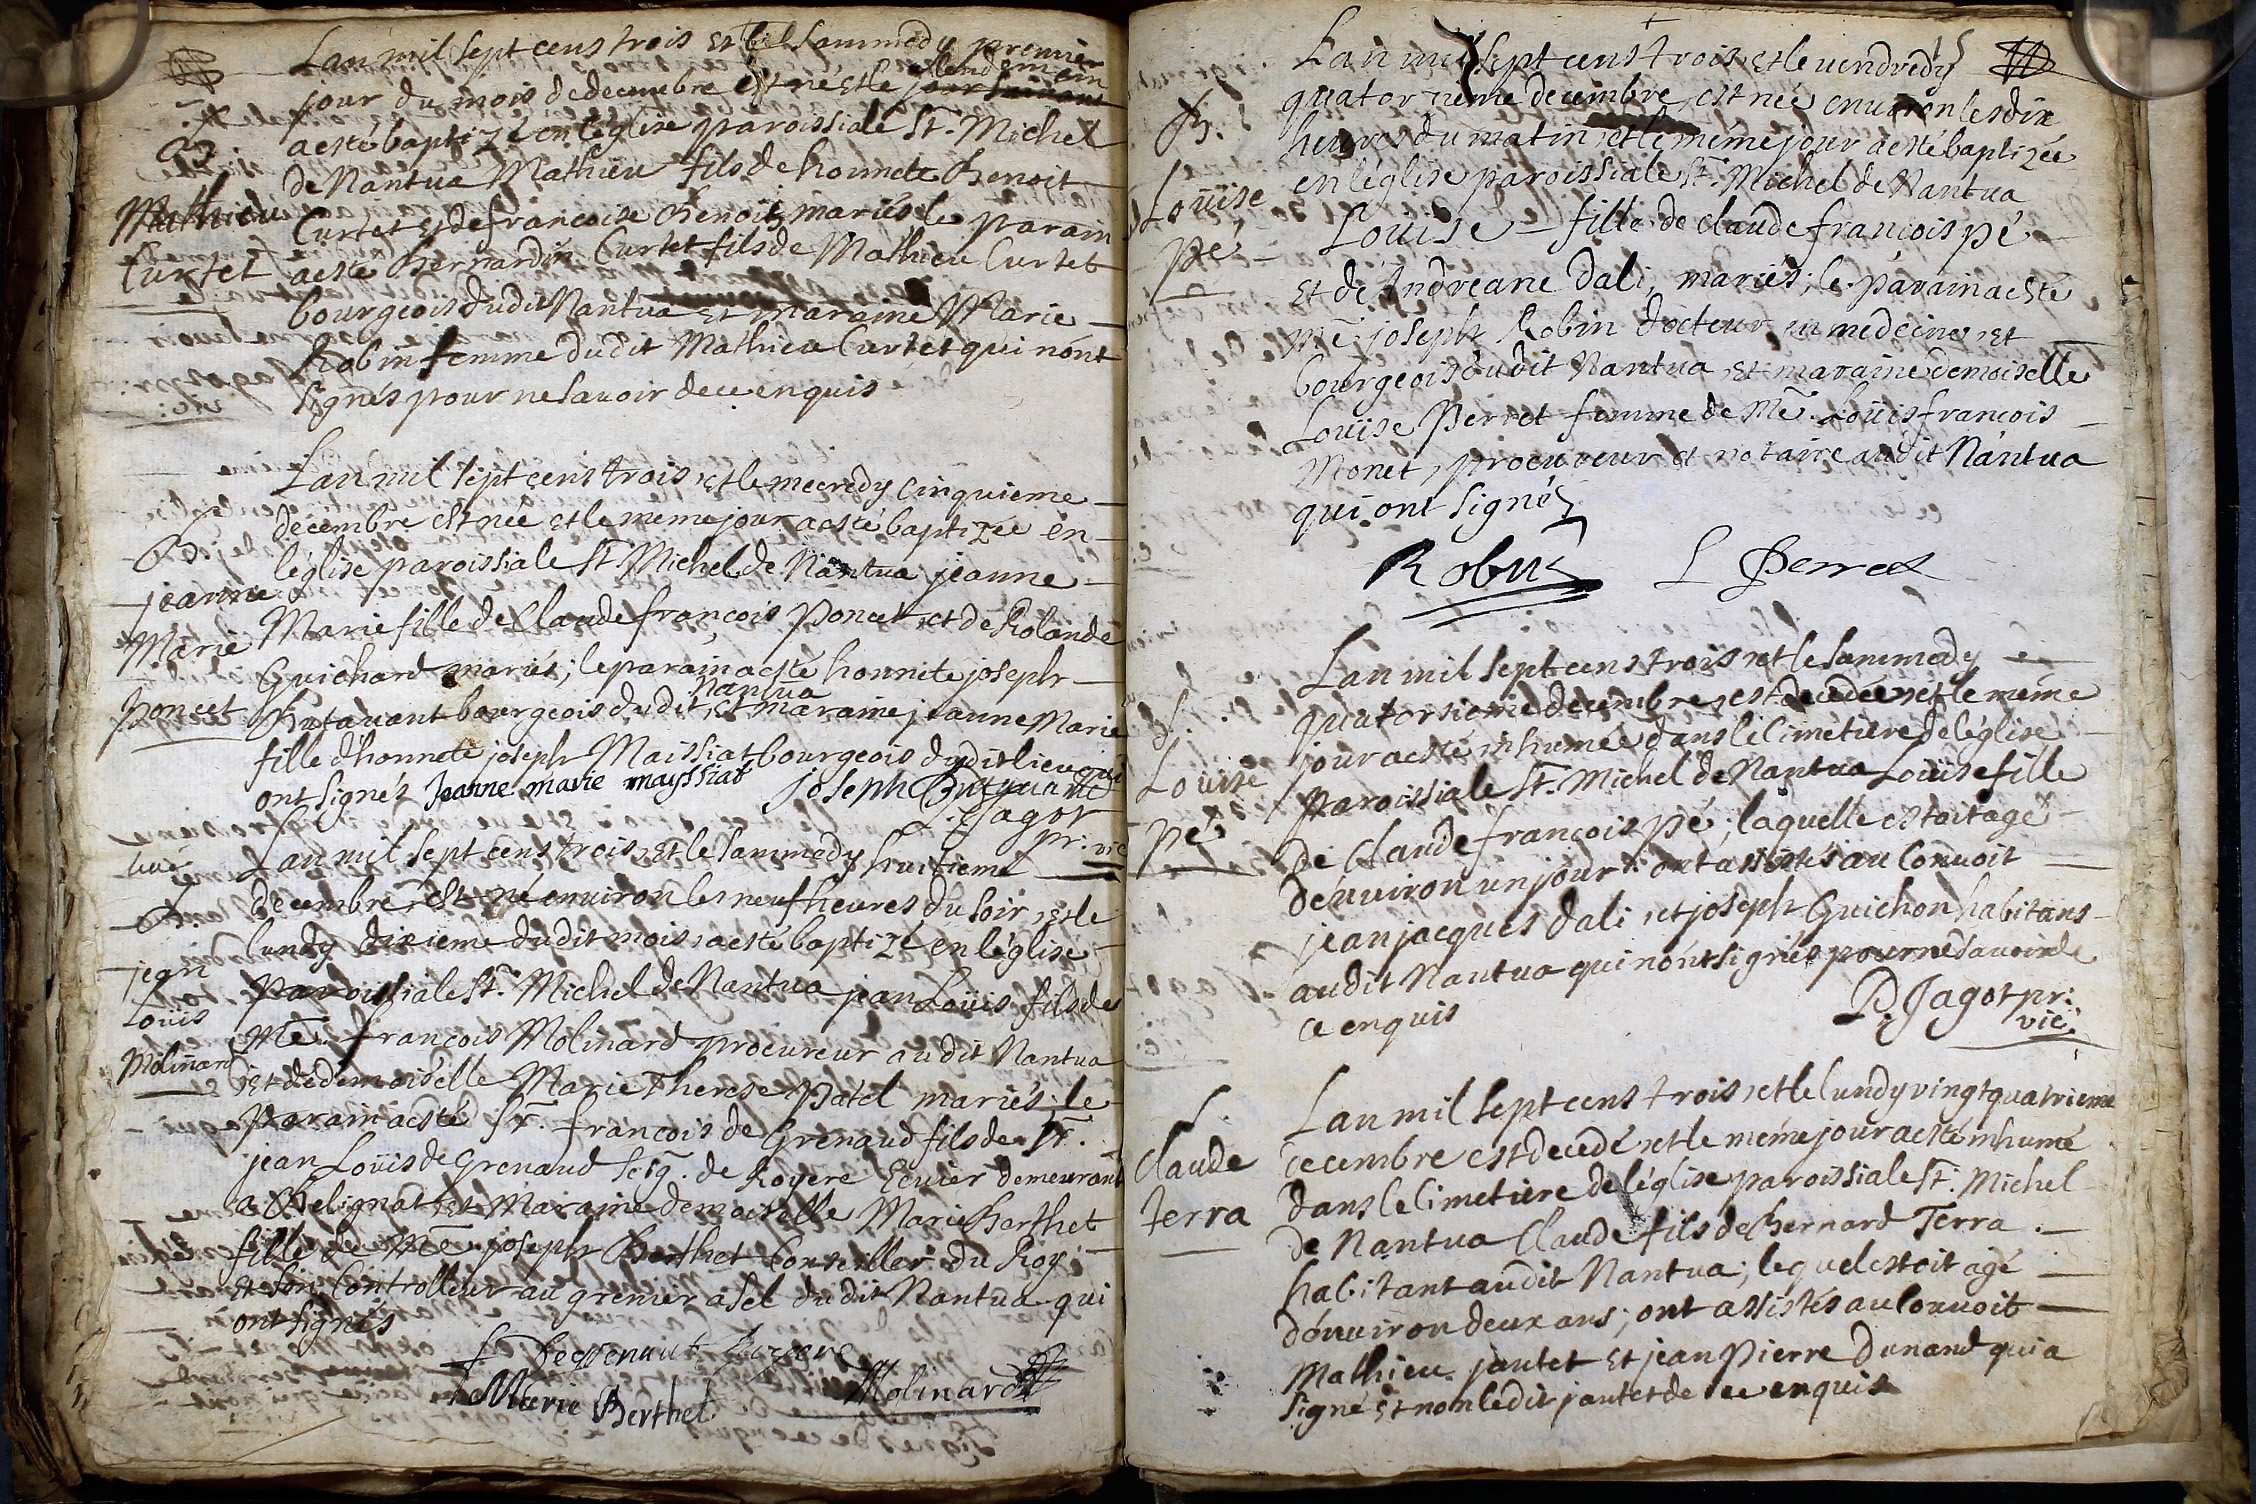 Lan mil sept cens trois et le sammedy premier
jour du mois de decembre est né et le lendemain
B. a esté baptizé en léglise paroissiale St. Michel
de Nantua Mathieu fils de honnete Benoit
Mathieu Curtet et de francoise Benoit mariés le parain
Curtet a esté Bernardin Curtet fils de Mathieu Curtet
bourgeois dudit Nantua et maraine Marie
Robin femme dudit Mathieu Curtet qui nónt
signés pour ne savoir de ce enquis
Lan mil sept cens trois et le mecredy cinquieme
decembre est née et le meme jour a esté baptizée en
B. léglise paroissiale St Michel de Nantua jeanne
jeanne
Marie Marie fille de Claude françois Poncet et de Rolande
Guichard mariés; le parain a esté honnete joseph
Poncet Butavant bourgeois dudit Nantua et maraine jeanne Marie
fille dhonnete joseph Maissiat bourgeois dudit lieu qui
ont signés Jeanne marie mayssiat joseph
Jagot
pr: vic
Lan mil sept cens trois et le sammedy huitieme
decembre est né environ les neuf heures du soir et le
B. lundy dixieme dudit mois a esté baptizé en léglise
jean paroissiale St. Michel de Nantua jean Loüis fils de
Loüis
Molinard Me. françois Molinard procureur audit Nantua
et de demoiselle Marie Therese Patel mariés; le
parain a esté Sr. françois de Grenaud fils de Sr.
jean Loüis de Grenaud Seig. de Royere Ecuier demeurant
a Belignat et Maraine demoiselle Marie Berthet
fille de Me. joseph Berthet Conseiller du Roy
et son Controlleur au grenier a sel dudit Nantua qui
ont signés
Marie Berthet Molinard
Lan mil sept cens trois et le vendredy
quatorzieme decembre est née environ les dix
B. heures du matin et le méme jour a esté baptizée
en léglise paroissiale St. Michel de Nantua
Loüise Loüise fille de Claude françois pé
pé et de Andreane Dali, mariés; le parain a esté
Me. joseph Robin docteur en medecine et
bourgeois dudit Nantua et maraine demoiselle
Loüise Perret femme de Me. Loüis françois
Monet, procureur et notaire audit Nantua
qui ont signés
Robin L Perret
Lan mil sept cens trois et le sammedy
quatorsieme decembre est decedée et le méme
S. jour a esté inhumée dans le cimetiere de léglise
Loüise paroissiale St. Michel de Nantua Loüise fille
pé de Claude françois pé; laquelle estoit agé
dénviron un jour: ont assistés au Convoit
jean jacques Dali et joseph Guichon habitans
audit Nantua qui nónt signés pour ne savoir de
ce enquis
Jagot pr:
vic:
Lan mil sept cens trois et le lundy vingt quatrieme
S. decembre est decedé et le méme jour a esté inhumé
Claude dans le Cimetiere de léglise paroissiale St. Michel
Terra de Nantua Claude fils de Bernard Terra
habitant audit Nantua; lequel estoit agé
dénviron deux ans; ont assistés au Convoit
Mathieu jautet et jean Pierre Dunand qui a
signé et non ledit jautet de ce enquis